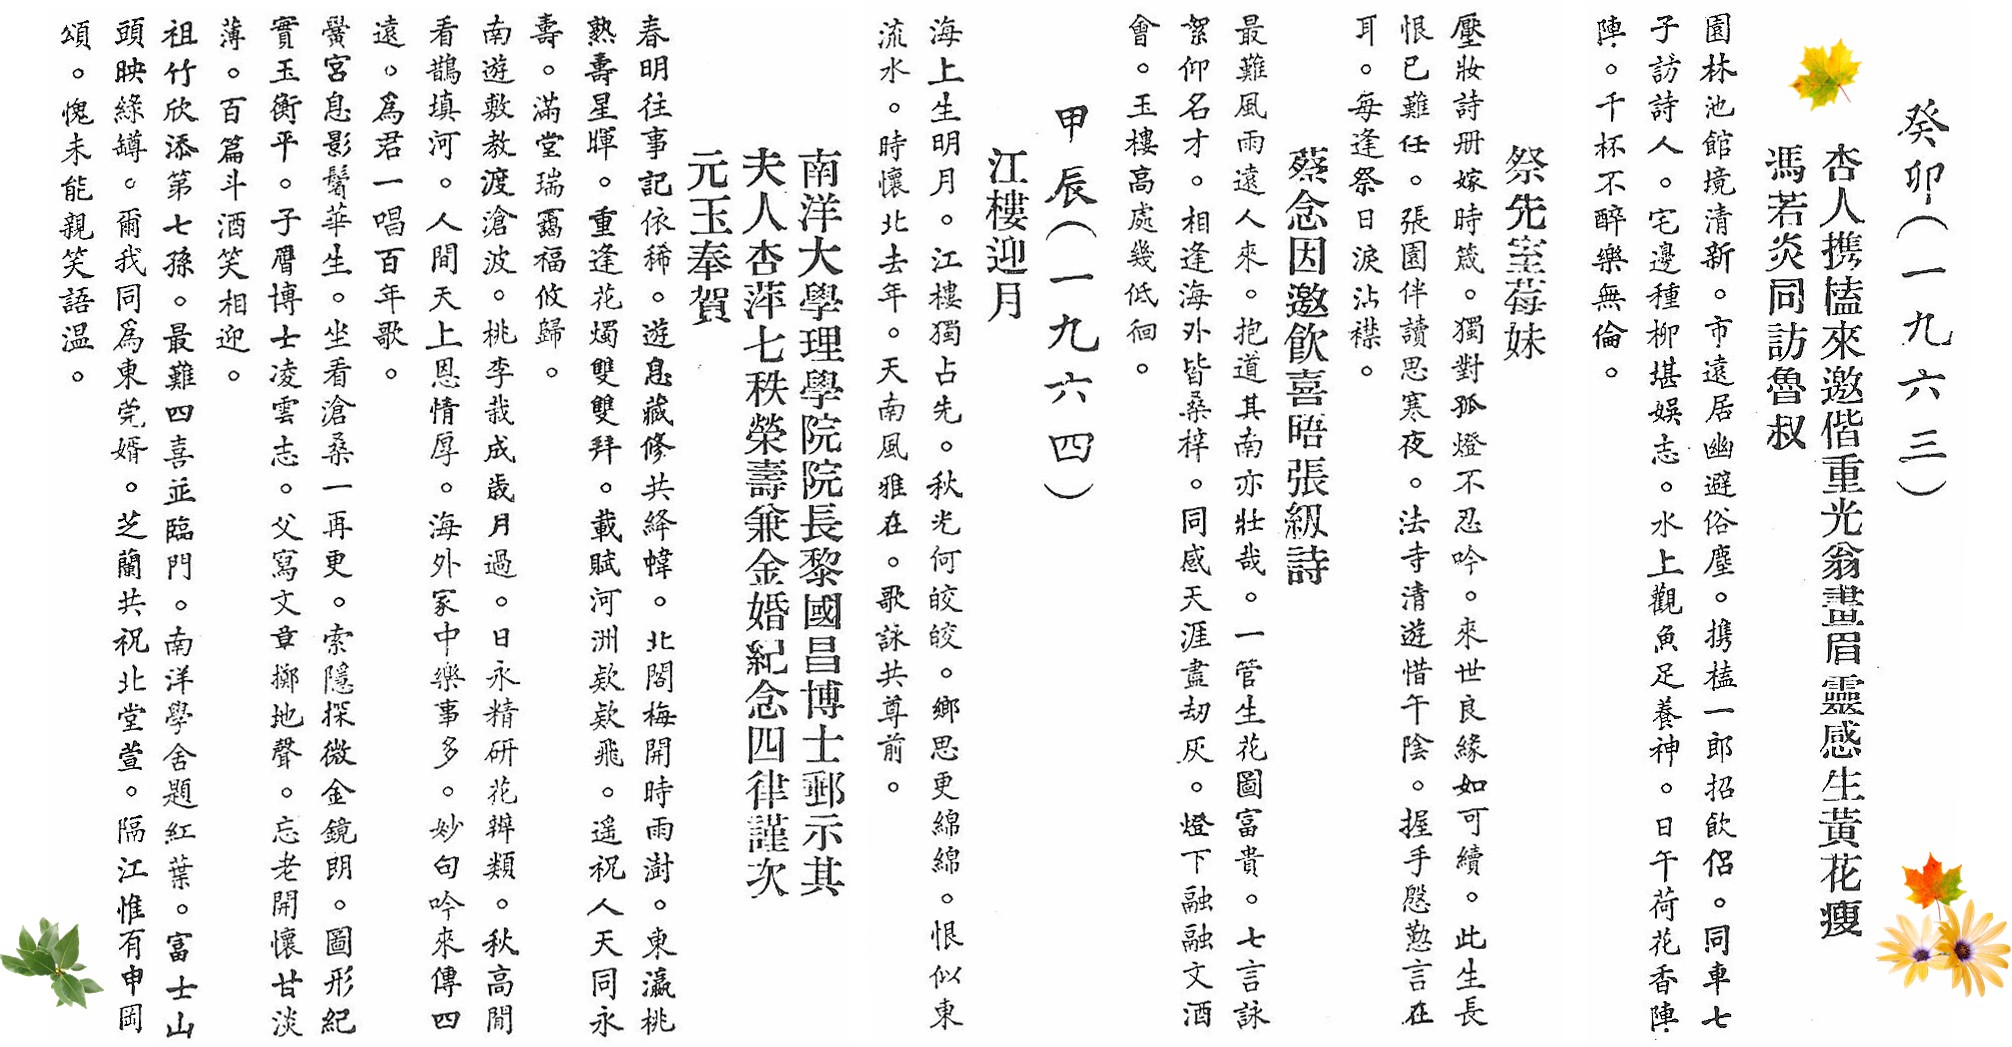 癸卯(一九六三)
杏人携榼來邀偕重光翁畫眉靈感生黃花瘦
馮若炎同訪魯叔
園林池館境清新。市遠居幽避俗塵。携榼一郎招飲侶。同車七
子訪詩人。宅邊種柳堪娛志。水上觀魚足養神。日午荷花香陣
陣。千杯不醉樂無倫。
祭先室莓妹
壓妝詩册嫁時箴。獨對孤燈不忍吟。來世良緣如可續。此生長
恨已難任。張園伴讀思寒夜。法寺清遊惜午陰。握手慇懃言在
耳。每逢祭日淚沾襟。
蔡念因邀飲喜晤張紉詩
最難風雨遠人來。抱道其南亦壯哉。一管生花圖富貴。七言詠
絮仰名才。相逢海外皆桑梓。同感天涯盡劫灰。燈下融融文酒
會。玉樓高處幾低徊。
甲辰(一九六四)
江樓迎月
海上生明月。江樓獨占先。秋光何皎皎。鄉思更綿綿。恨似東
流水。時懷北去年。天南風雅在。歌詠共尊前。
南洋大學理學院院長黎國昌博士郵示其
夫人杏萍七秩榮壽兼金婚紀念四律謹次
元玉奉賀
春明往事記依稀。遊息藏修共絳幃。北閣梅開時雨澍。東瀛桃
熟壽星暉。重逢花燭雙雙拜。載賦河洲欵欵飛。遥祝人天同永
壽。滿堂瑞靄福攸歸。
南遊敷教渡滄波。桃李栽成歲月過。日永精研花辨類。秋高閒
看鵲填河。人間天上恩情厚。海外冢中樂事多。妙句吟來傳四
遠。爲君一唱百年歌。
黌宮息影鬢華生。坐看滄桑一再更。索隱探微金鏡朗。圖形紀
實玉衡平。子膺博士凌雲志。父寫文章擲地聲。忘老開懷甘淡
薄。百篇斗酒笑相迎。
祖竹欣添第七孫。最難四喜並臨門。南洋學舍題紅葉。富士山
頭映綠罇。爾我同爲東莞婿。芝蘭共祝北堂萱。隔江惟有申岡
頌。愧未能親笑語溫。